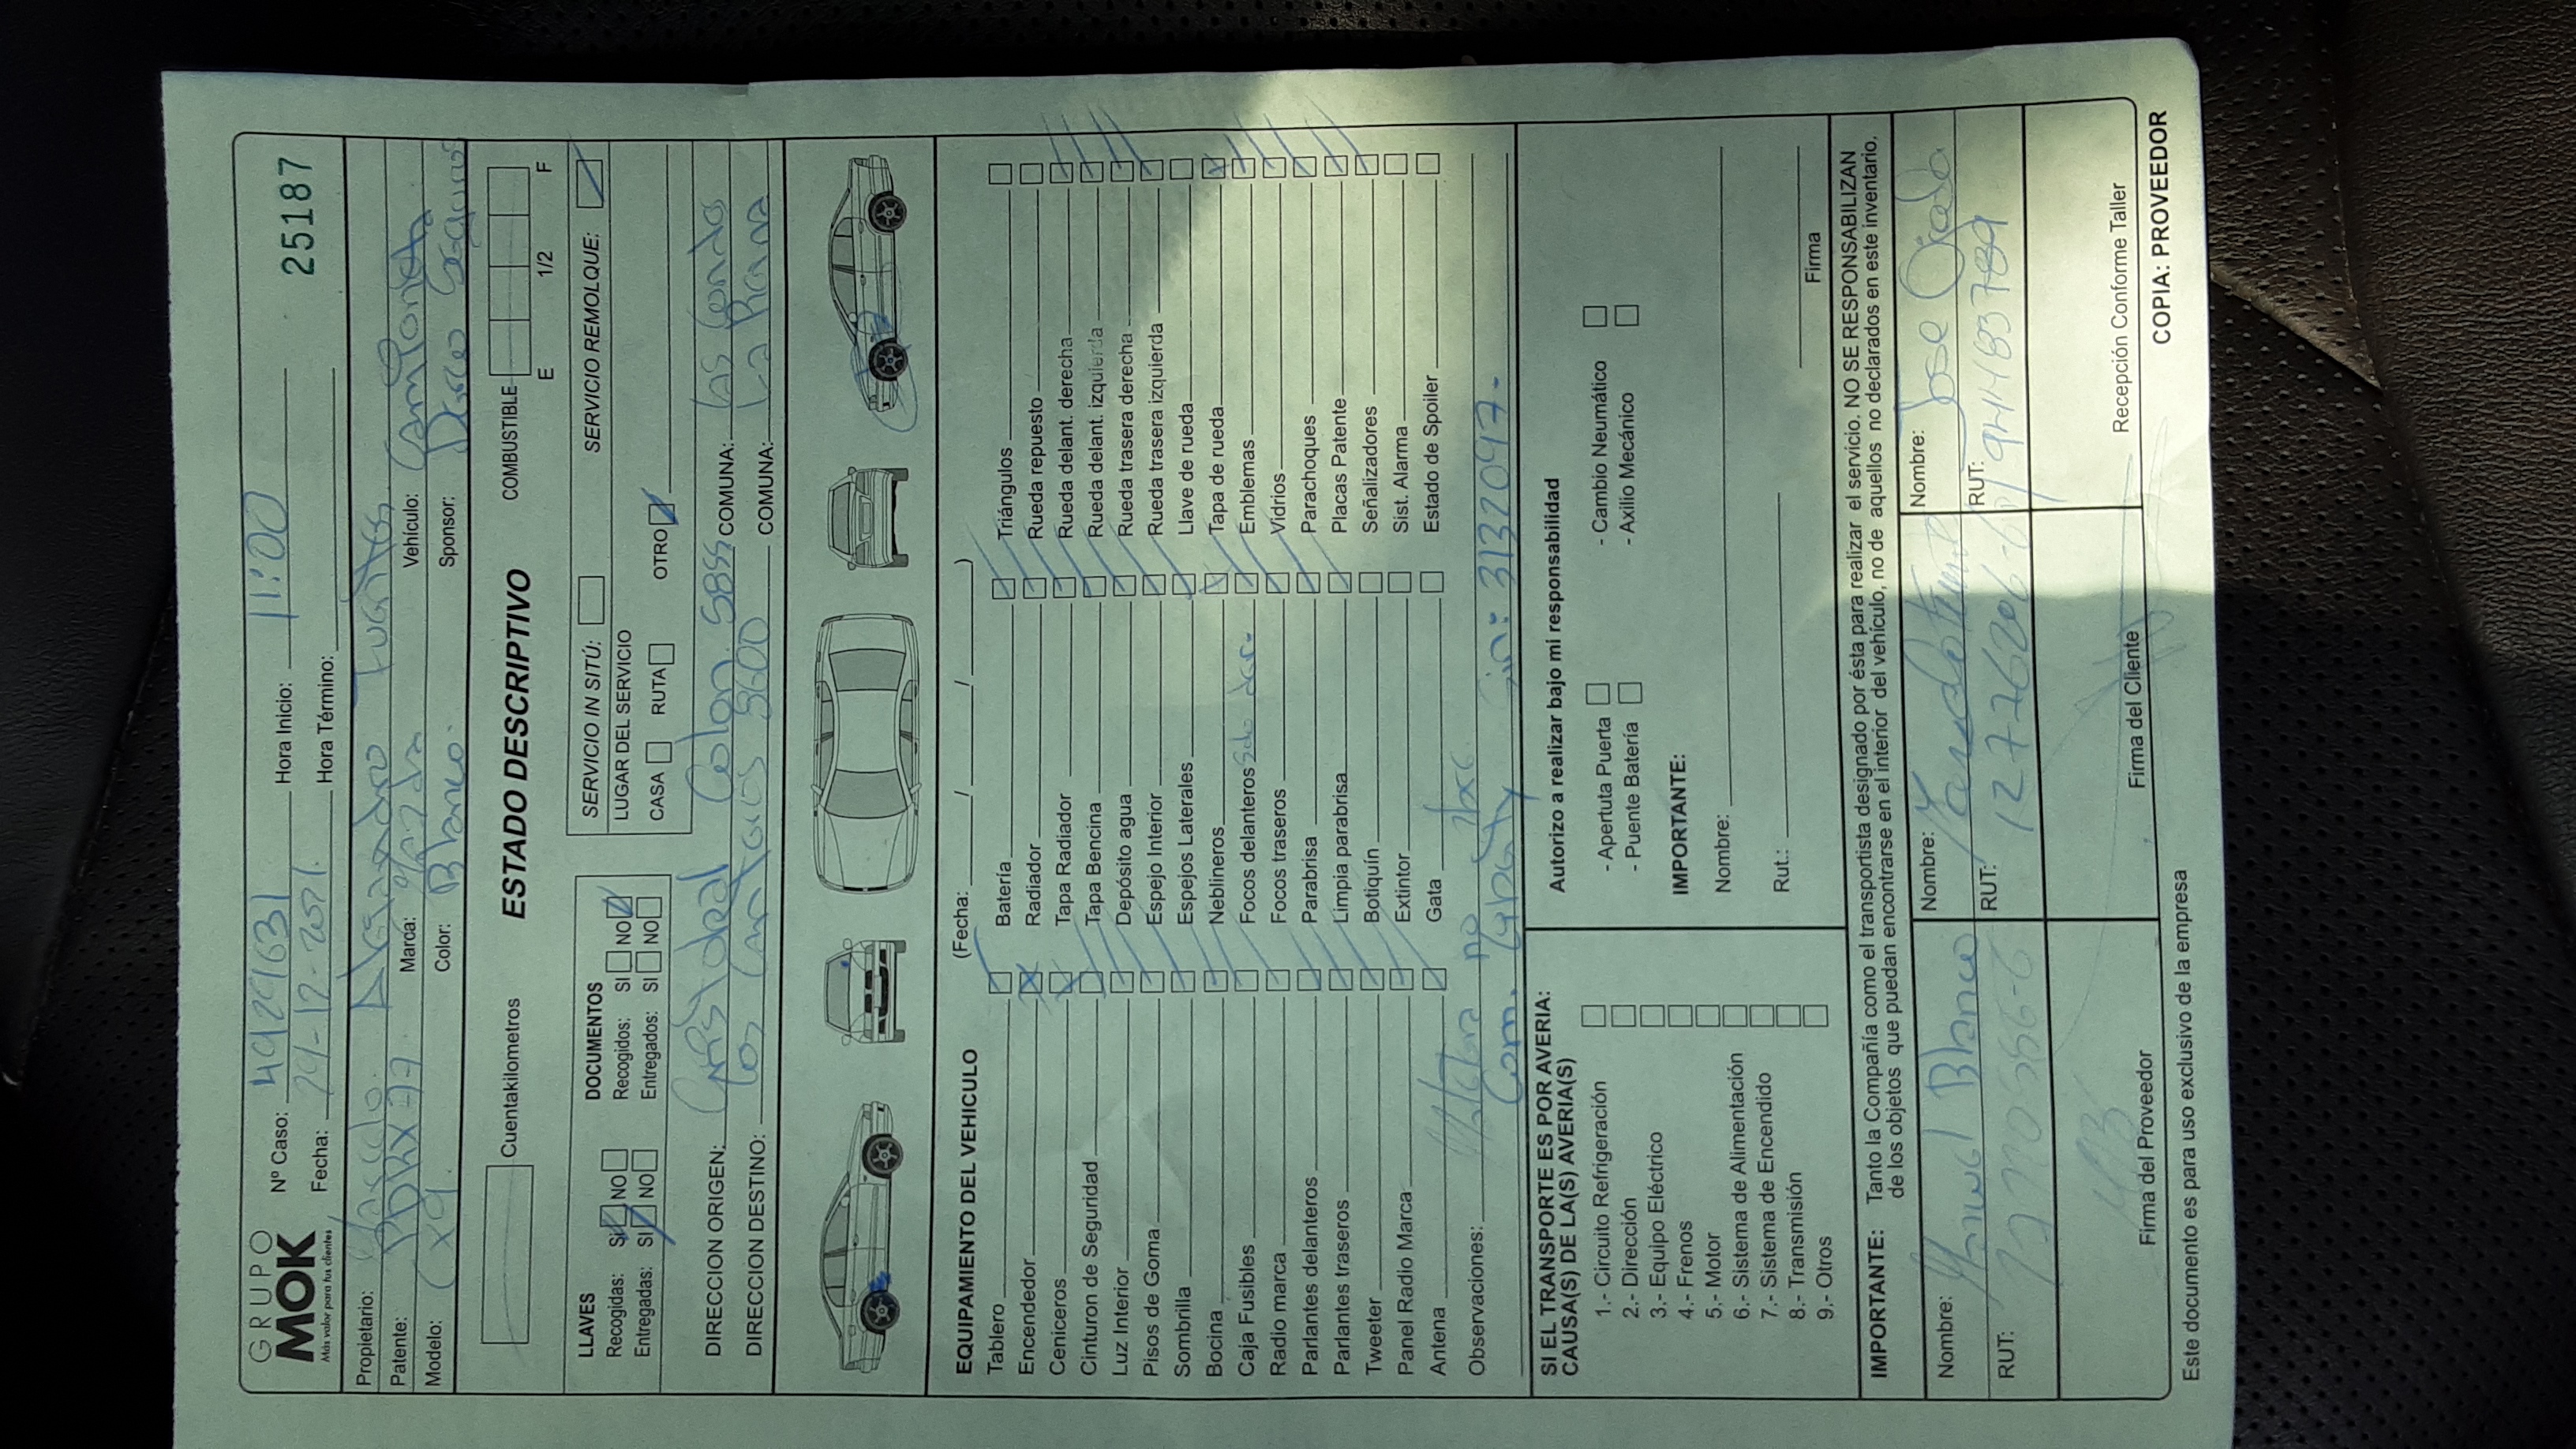 GRUPO
MOK
Más valor para tus clientes
Nº Caso: 4929631 Hora Inicio: 11:00 25187
Fecha: 29-12-2021. Hora Término:
Propietario: Alejandro Fuentes
Patente: Marca: Mazda Vehículo: Camioneta
Modelo: Cx9. Color: Blanco. Sponsor: Seguros
Cuentakilometros ESTADO DESCRIPTIVO COMBUSTIBLE E 1/2 F
LLAVES
Recogidas: SI NO
Entregadas: SI NO
DOCUMENTOS
Recogidos: SI NO
Entregados: SI NO
SERVICIO IN SITÚ: SERVICIO REMOLQUE:
LUGAR DEL SERVICIO
CASA RUTA OTRO
DIRECCION ORIGEN: Cristobal Colon 5855 COMUNA: Las Condes
DIRECCION DESTINO: Los 9600 COMUNA: La Reina
EQUIPAMIENTO DEL VEHICULO (Fecha: / / )
Tablero Batería Triángulos
Encendedor Radiador Rueda repuesto
Ceniceros Tapa Radiador Rueda delant. derecha
Cinturon de Seguridad Tapa Bencina Rueda delant. izquierda
Luz Interior Depósito agua Rueda trasera derecha
Pisos de Goma Espejo Interior Rueda trasera izquierda
Sombrilla Espejos Laterales Llave de rueda
Bocina Neblineros Tapa de rueda
Caja Fusibles Focos delanteros Solo Emblemas
Radio marca Focos traseros Vidrios
Parlantes delanteros Parabrisa Parachoques
Parlantes traseros Limpia parabrisa Placas Patente
Tweeter Botiquín Señalizadores
Panel Radio Marca Extintor Sist. Alarma
Antena Gata Estado de Spoiler
Observaciones: no
Com. Sin: 3132097.
SI EL TRANSPORTE ES POR AVERIA:
CAUSA(S) DE LA(S) AVERIA(S)
1.- Circuito Refrigeración
2.- Dirección
3.- Equipo Eléctrico
4.- Frenos
5.- Motor
6.- Sistema de Alimentación
7.- Sistema de Encendido
8.- Transmisión
9.- Otros
Autorizo a realizar bajo mi responsabilidad
- Apertuta Puerta - Cambio Neumático
- Puente Batería - Axilio Mecánico
IMPORTANTE:
Nombre:
Rut.: Firma
IMPORTANTE: Tanto la Compañía como el transportista designado por ésta para realizar el servicio, NO SE RESPONSABILIZAN
de los objetos que puedan encontrarse en el interior del vehículo, no de aquellos no declarados en este inventario.
Nombre: Manuel Blanco Nombre: Nombre: Jose Ojeda
RUT: RUT: RUT:
Firma del Proveedor Firma del Cliente Recepción Conforme Taller
Este documento es para uso exclusivo de la empresa COPIA: PROVEEDOR